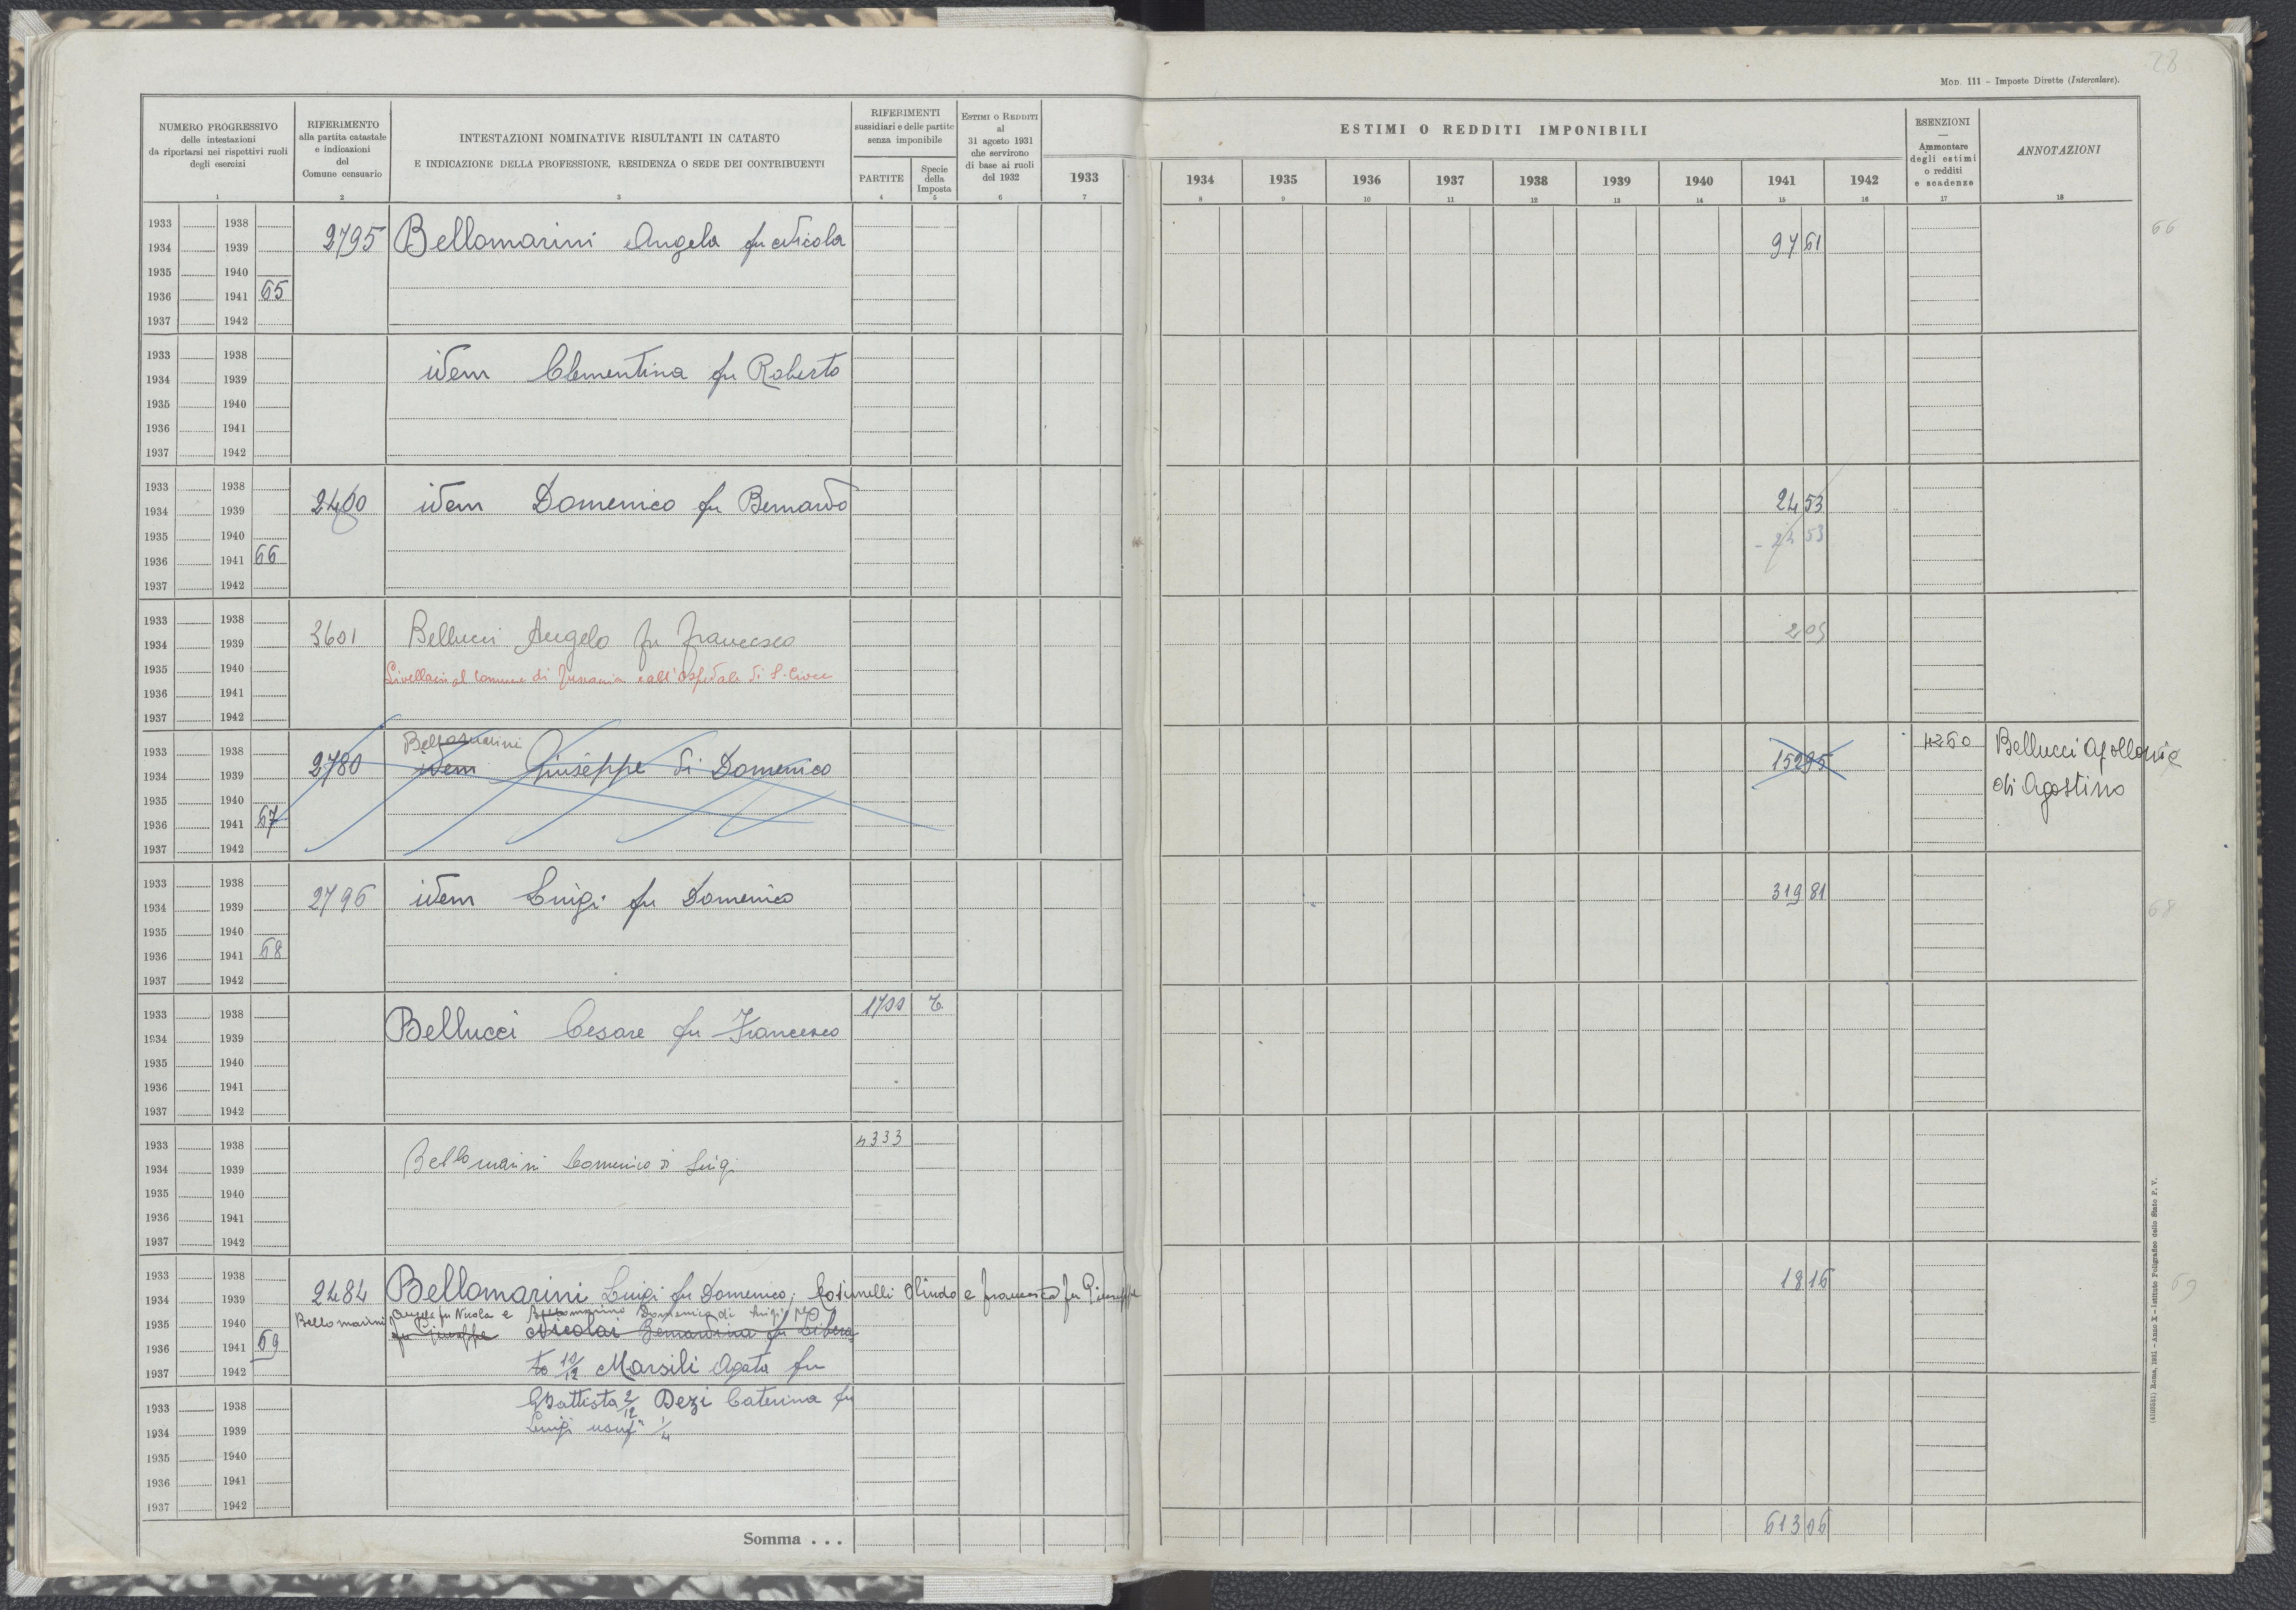 28
MOD. 111 - Imposte Dirette (Intercalare).
NUMERO PROGRESSIVO
delle intestazioni
da riportarsi nei rispettivi ruoli
degli esercizi
1
RIFERIMENTO
alla partita catastale
e indicazioni
del
Comune censuario
2
INTESTAZIONI NOMINATIVE RISULTANTI IN CATASTO
E INDICAZIONE DELLA PROFESSIONE, RESIDENZA O SEDE DEI CONTRIBUENTI
3
RIFERIMENTI
sussidiari e delle partite
senza imponibile
PARTITE
4
Specie
della
Imposta
5
ESTIMI O REDDITI
al
31 agosto 1931
che servirono
di base ai ruoli
del 1932
6
ESTIMI O REDDITI IMPONIBILI
1933 1934 1935 1936 1937 1938 1939 1940 1941 1942
7 8 9 10 11 12 13 14 15 16
ESENZIONI
—
Ammontare
degli estimi
o redditi
e scadenze
17
ANNOTAZIONI
18
1933 1938
1934 1939 2795 Bellomarini Angela fu Nicola 97 61 66
1935 1940
1936 1941 65
1937 1942
1933 1938
1934 1939 idem Clementina fu Roberto
1935 1940
1936 1941
1937 1942
1933 1938
1934 1939 2400 idem Domenico fu Bernardo 24 53
1935 1940 - 24 53
1936 1941 66
1937 1942
1933 1938
1934 1939 3601 Bellucci Angelo fu Francesco 2 05
1935 1940 al Comune di e all'Ospedale di S. Croce
1936 1941
1937 1942
1933 1938 Bellomarini 4260 Bellucci Apollonia
1934 1939 2780 idem Giuseppe di Domenico 152 95 di Agostino
1935 1940
1936 1941 67
1937 1942
1933 1938
1934 1939 2796 idem Luigi fu Domenico 319 81 68
1935 1940
1936 1941 68
1937 1942
1933 1938 1799 T.
1934 1939 Bellucci Cesare fu Francesco
1935 1940
1936 1941
1937 1942
1933 1938 4333
1934 1939 Bellomarini Domenico di Luigi
1935 1940
1936 1941
1937 1942
1933 1938 18 16 69
1934 1939 2484 Bellomarini Luigi fu Domenico, Olindo e Francesco fu Giuseppe
1935 1940 Bellomarini Angela fu Nicola e Bellomarini Domenico di Luigi
1936 1941 69 fu Giuseppe Nicolai Bernardina fu Libera
1937 1942 to 10/12 Marsili Agata fu
1933 1938 GBattista 2/12 Dezi Caterina fu
1934 1939 Luigi usuf 1/4
1935 1940
1936 1941
1937 1942
Somma . . . 613 06
(4109551) Roma, 1931 - Anno X - Istituto Poligrafico dello Stato P. V.